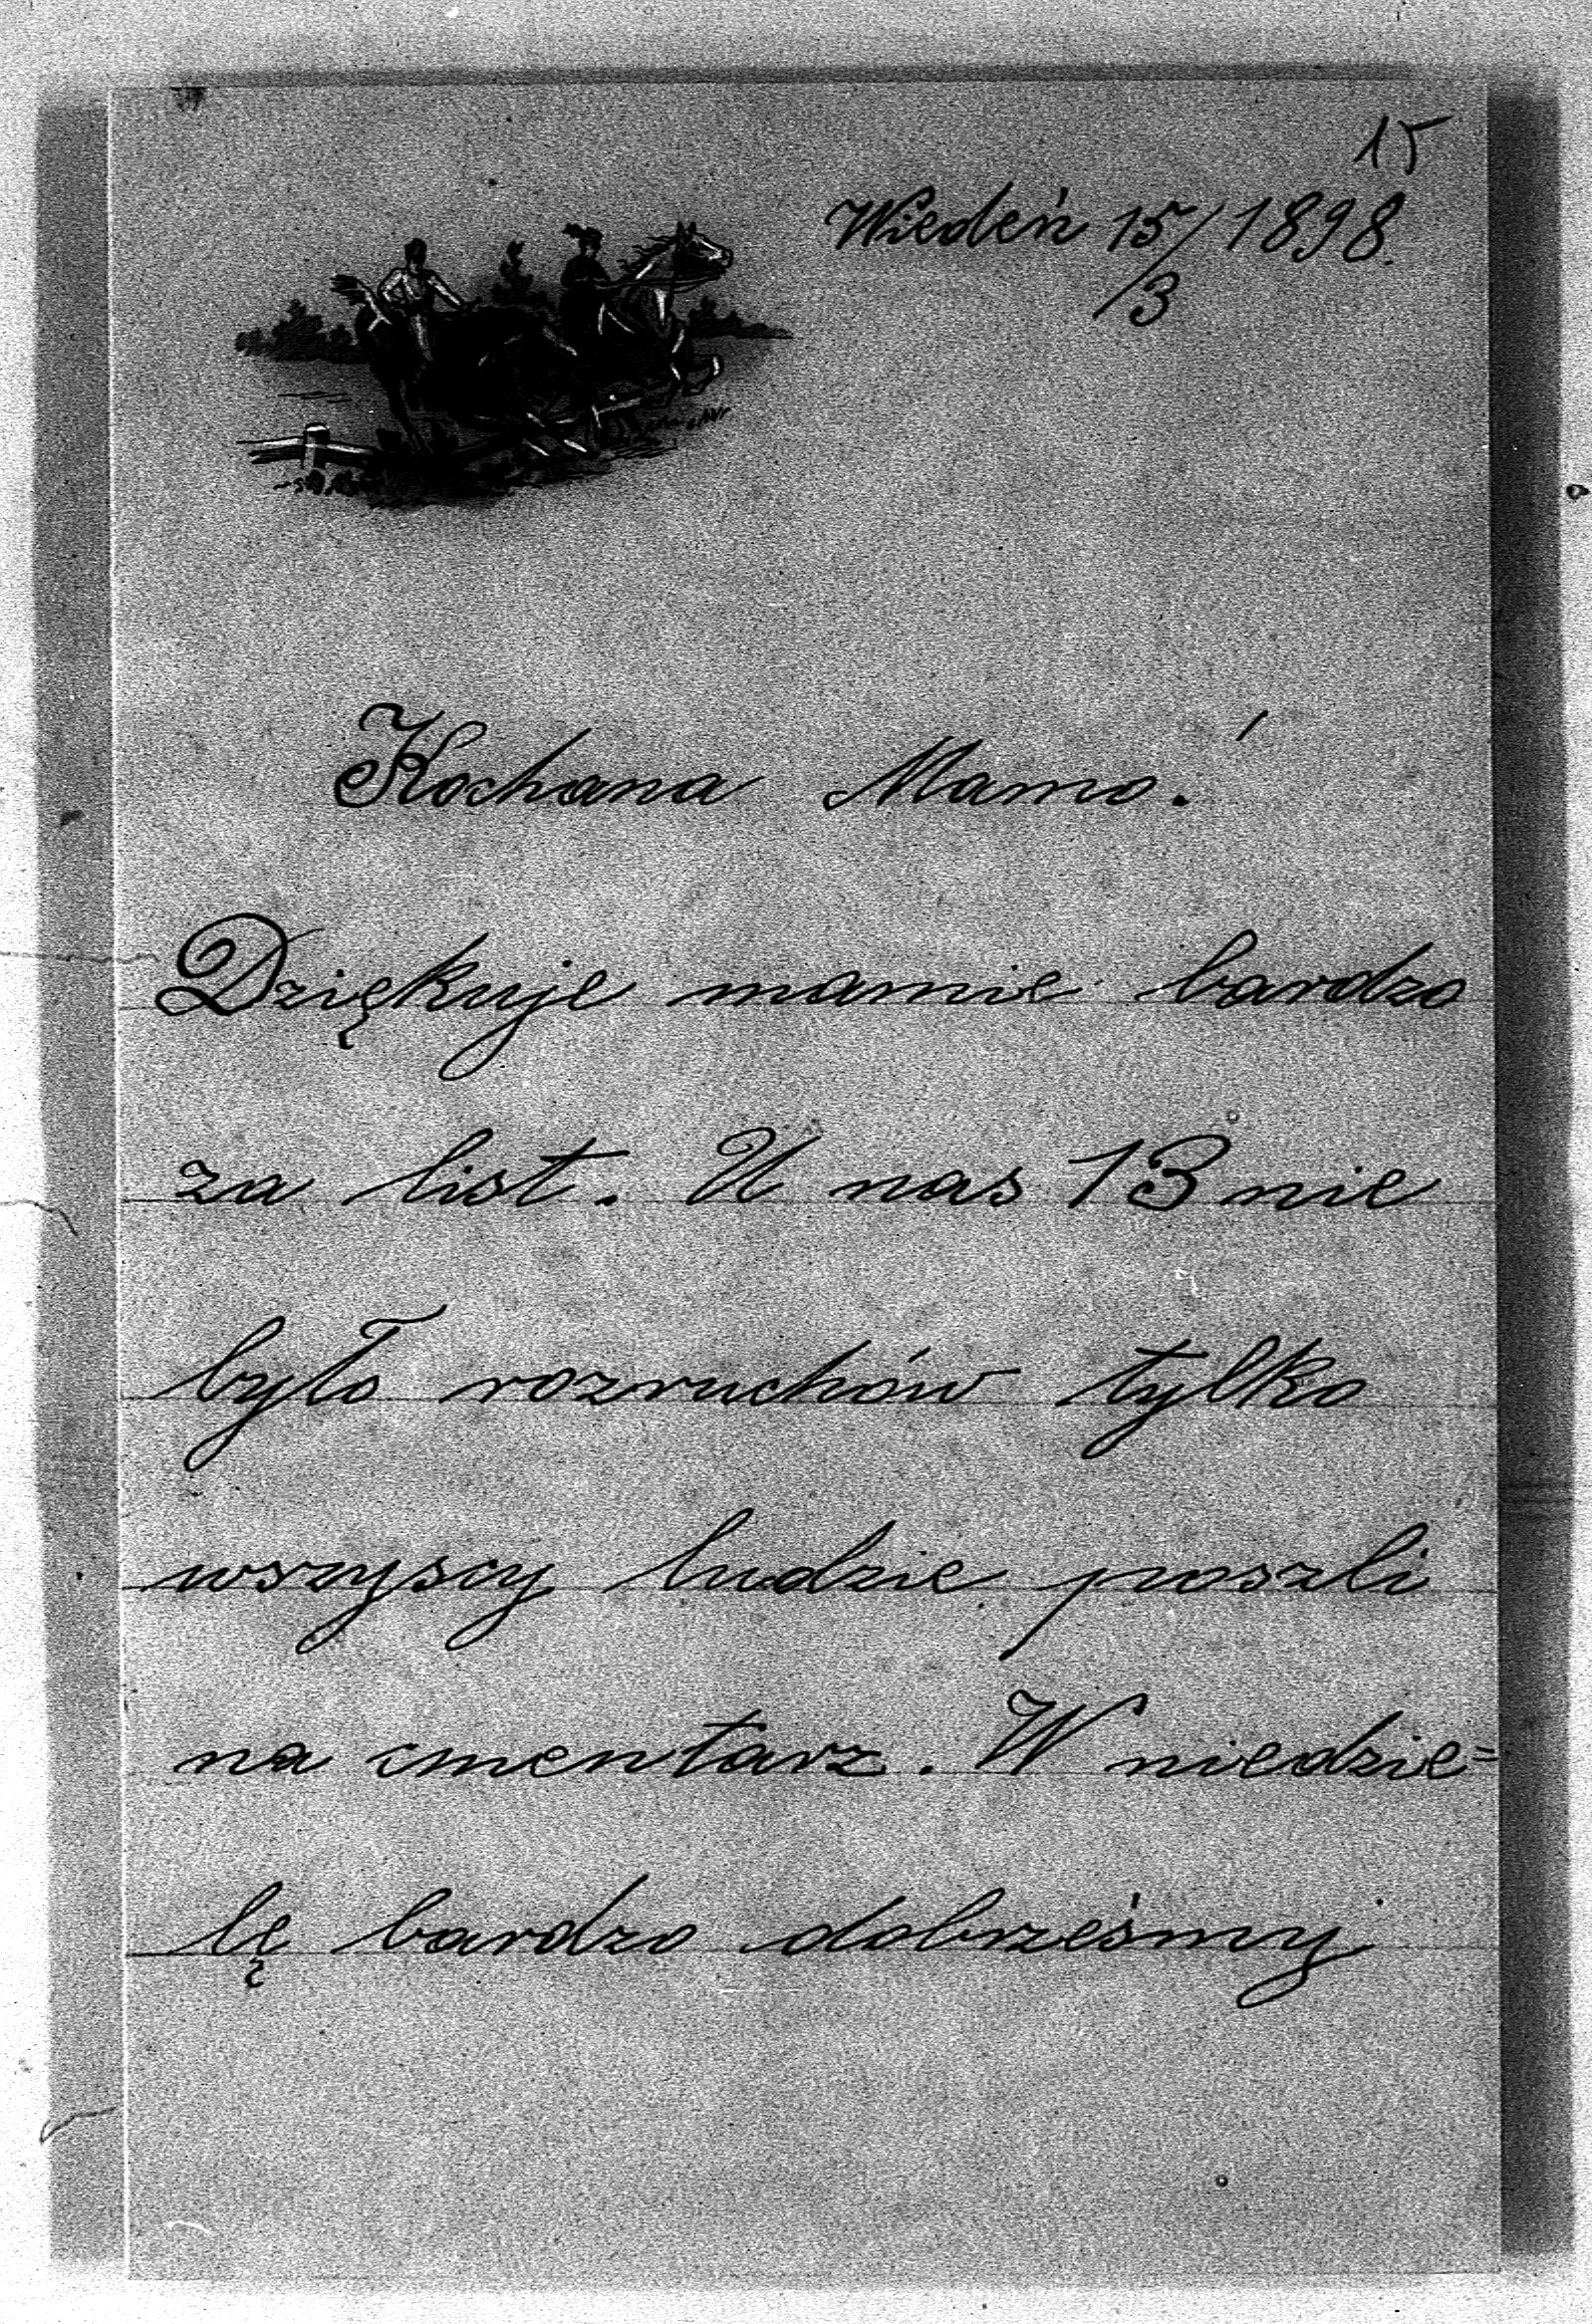 15
Wiedeń 15/3 1898.
Kochana Mamo!
Dziękuje mamie bardzo
za list. U nas 13 nie
było rozruchów tylko
wszyscy ludzie poszli
na cmentarz. W niedzie=
lę bardzo dobrześmy